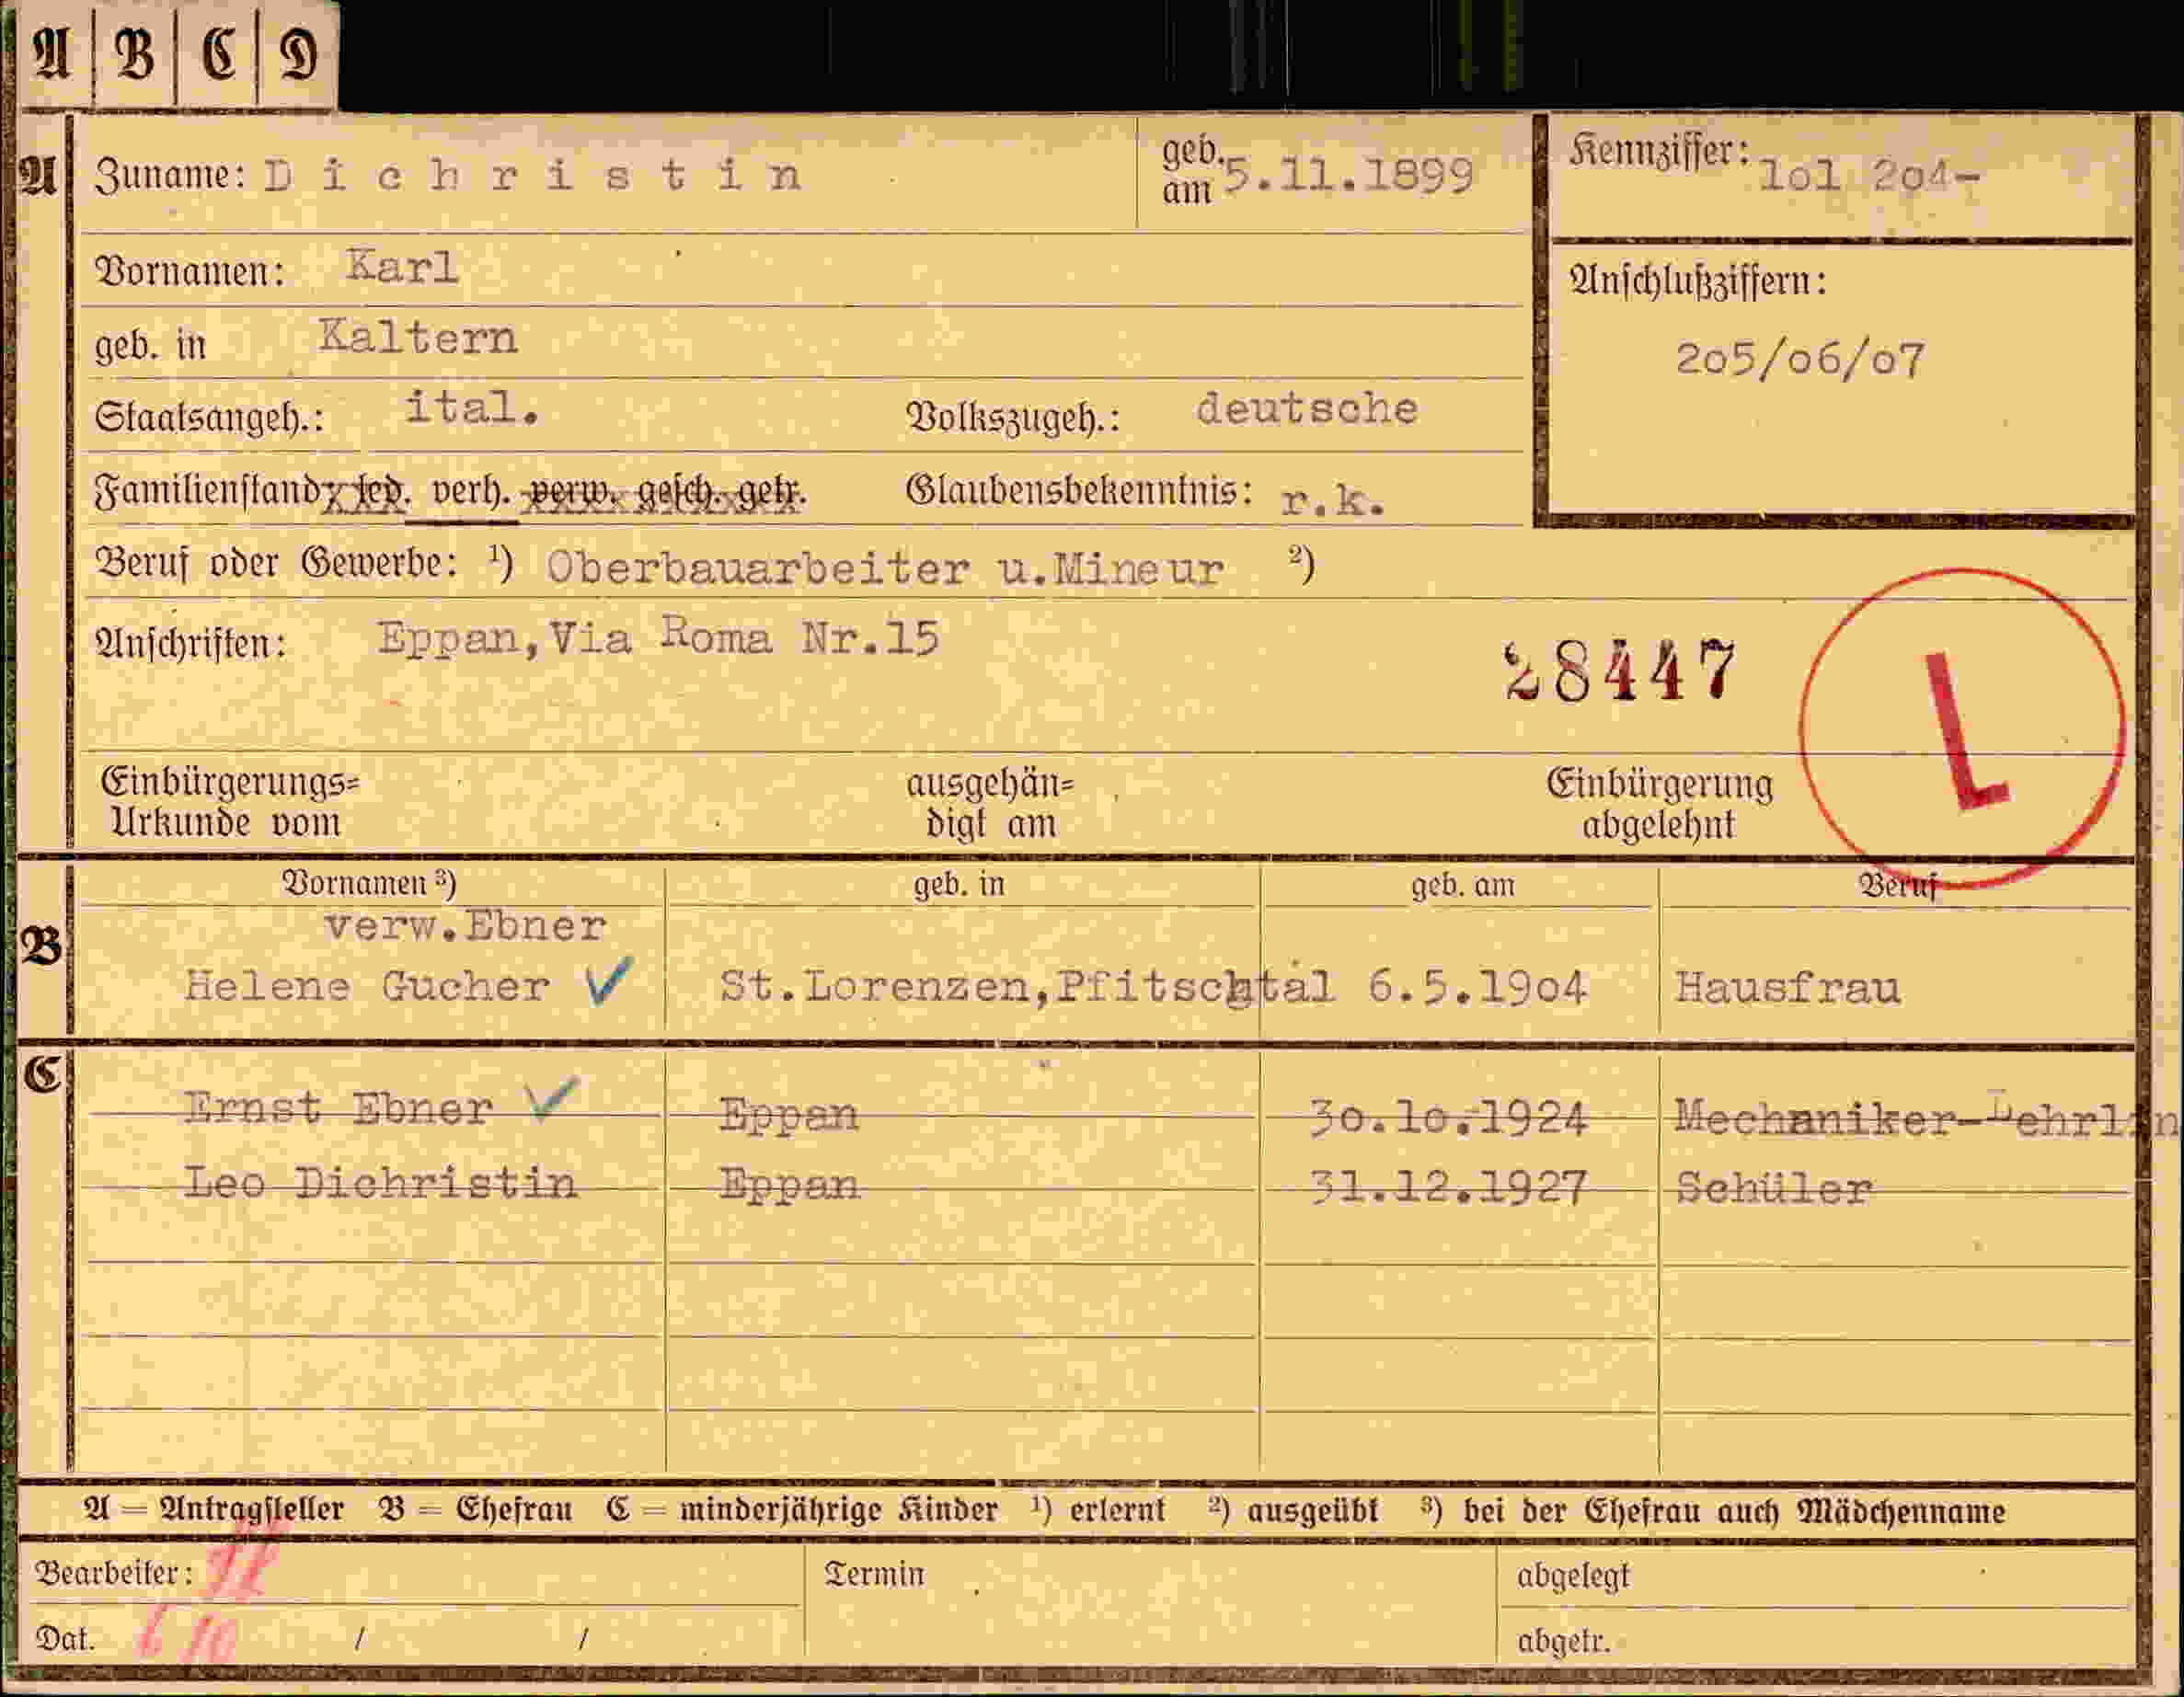 A B C D
A Zuname: Dichristin geb. am 5.11.1899 Kennziffer: lol 2o4-
Vornamen: Karl
Anschlußziffern:
geb. in Kaltern
2o5/o6/o7
Staatsangeh.: ital. Volkszugeh.: deutsche
Familienstand: led. verh. verw. gesch. getr. Glaubensbekenntnis: r.k.
Beruf oder Gewerbe: ¹) Oberbauarbeiter u.Mineur ²)
Anschriften: Eppan,Via Roma Nr.15
28447
L
Einbürgerungs= ausgehän= Einbürgerung
Urkunde vom digt am abgelehnt
Vornamen ³) geb. in geb. am Beruf
verw.Ebner
B Helene Gucher ✓ St.Lorenzen,Pfitschtal 6.5.19o4 Hausfrau
C
Ernst Ebner ✓ Eppan 3o.lo.1924 Mechaniker-Lehrlin
Leo Dichristin Eppan 31.12.1927 Schüler
A = Antragsteller B = Ehefrau C = minderjährige Kinder ¹) erlernt ²) ausgeübt ³) bei der Ehefrau auch Mädchenname
Bearbeiter: Termin abgelegt
Dat. 6/10 / / abgetr.